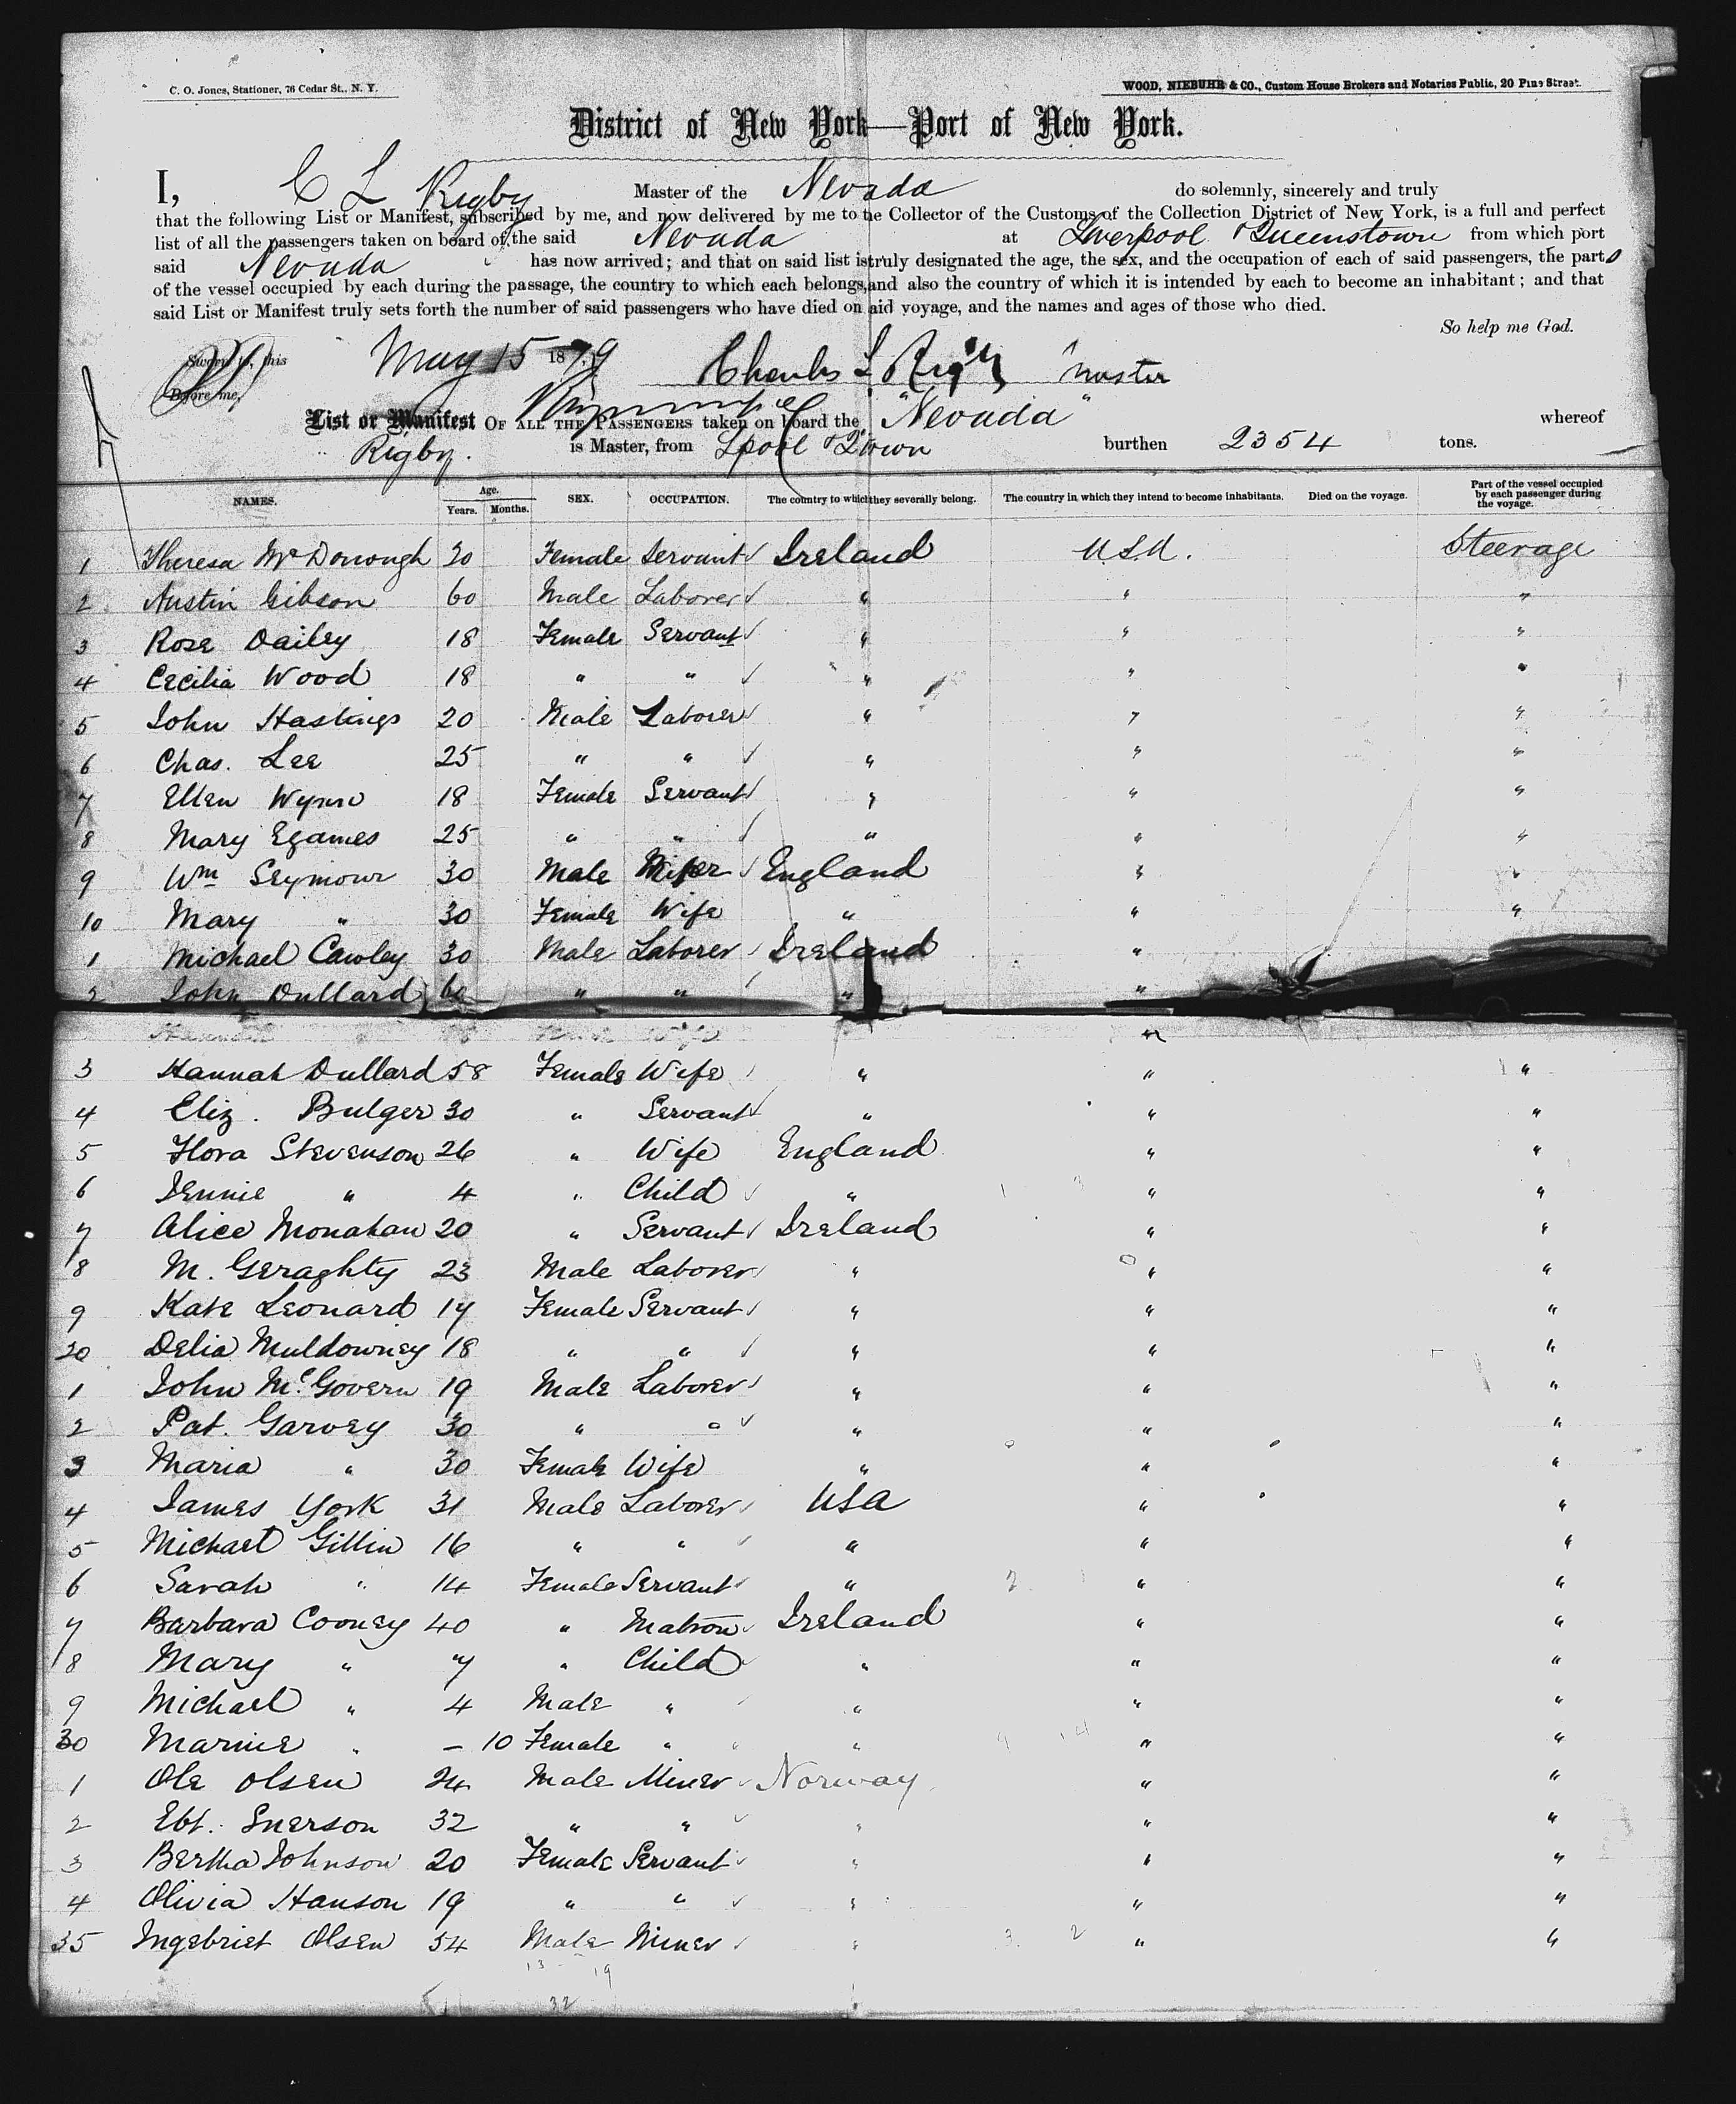 C. O. Jones, Stationer, 76 Cedar St., N. Y.
WOOD, NIEBUHR & CO., Custom House Brokers and Notaries Public, 20 Pine Street.
District of New York—Port of New York.
I, C L Rigby Master of the Nevada do solemnly, sincerely and truly
that the following List or Manifest, subscribed by me, and now delivered by me to the Collector of the Customs of the Collection District of New York, is a full and perfect
list of all the passengers taken on board of the said Nevada at Liverpool & Queenstown from which port
said Nevada has now arrived; and that on said list is truly designated the age, the sex, and the occupation of each of said passengers, the part
of the vessel occupied by each during the passage, the country to which each belongs, and also the country of which it is intended by each to become an inhabitant; and that
said List or Manifest truly sets forth the number of said passengers who have died on said voyage, and the names and ages of those who died.
So help me God.
Sworn to, this May 15 1879 Charles L Rigby Master
Before me,
List or Manifest OF ALL THE PASSENGERS taken on board the "Nevada" whereof
Rigby. is Master, from Lpool & Qtown burthen 2354 tons.
NAMES. Age. Years. Months. SEX. OCCUPATION. The country to which they severally belong. The country in which they intend to become inhabitants. Died on the voyage. Part of the vessel occupied by each passenger during the voyage.
1 Theresa McDonough 20 Female Servant Ireland U.S.A. Steerage
2 Austin Gibson 60 Male Laborer " " "
3 Rose Dailey 18 Female Servant " " "
4 Cecilia Wood 18 " " " " "
5 John Hastings 20 Male Laborer " " "
6 Chas. Lee 25 " " " " "
7 Ellen Wynne 18 Female Servant " " "
8 Mary Egames 25 " " " " "
9 Wm Seymour 30 Male Miner England " "
10 Mary " 30 Female Wife " " "
1 Michael Cawley 30 Male Laborer Ireland "
2 John Dullard 60 " " " "
3 Hannah Dullard 58 Female Wife " " "
4 Eliz. Bulger 30 " Servant " " "
5 Flora Stevenson 26 " Wife England " "
6 Jennie " 4 " Child " " "
7 Alice Monahan 20 " Servant Ireland " "
8 M. Geraghty 23 Male Laborer " " "
9 Kate Leonard 17 Female Servant " " "
20 Delia Muldowney 18 " " " " "
1 John McGovern 19 Male Laborer " " "
2 Pat. Garvey 30 " " " " "
3 Maria " 30 Female Wife " " "
4 James York 31 Male Laborer USA " "
5 Michael Gillin 16 " " " " "
6 Sarah " 14 Female Servant " " "
7 Barbara Cooney 40 " Matron Ireland " "
8 Mary " 7 " Child " " "
9 Michael " 4 Male " " " "
30 Marnie " – 10 Female " " " "
1 Ole Olsen 24 Male Miner Norway " "
2 Ebt. Enerson 32 " " " " "
3 Bertha Johnson 20 Female Servant " " "
4 Olivia Hanson 19 " " " " "
35 Ingebriet Olsen 54 Male Miner " " "
13 19
32